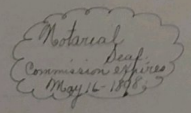 Notarial
Seal
Commission expires
May 16-1898